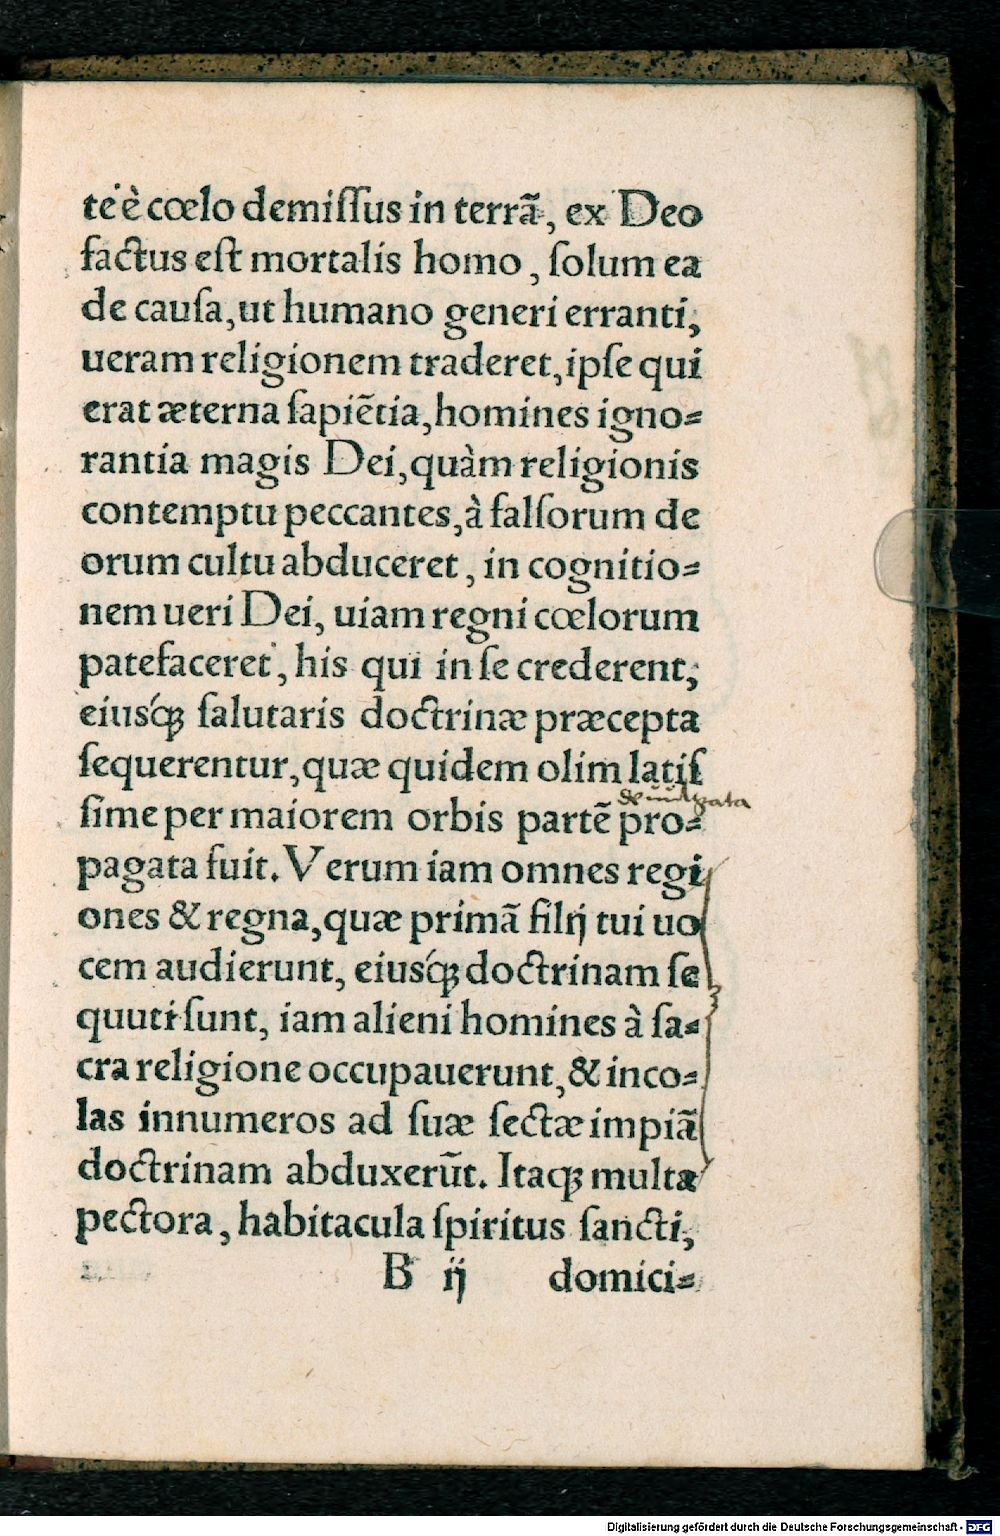 te è cœlo demiſſus in terrã, ex Deo
factus eſt mortalis homo, ſolum ea
de cauſa, ut humano generi erranti,
ueram religionem traderet, ipſe qui
erat æterna ſapiẽtia, homines igno⸗
rantia magis Dei, quàm religionis
contemptu peccantes, à falſorum de
orum cultu abduceret, in cognitio⸗
nem ueri Dei, uiam regni cœlorum
patefaceret, his qui in ſe crederent,
eiusq́ꝫ ſalutaris doctrinæ præcepta
ſequerentur, quæ quidem olim latiſ
ſime per maiorem orbis partẽ pro⸗
pagata fuit. Verum iam omnes regi
ones & regna, quæ primã filij tui uo
cem audierunt, eiusq́ꝫ doctrinam ſe
quuti ſunt, iam alieni homines à ſa⸗
cra religione occupauerunt, & inco⸗
las innumeros ad ſuæ ſectæ impiã
doctrinam abduxerũt. Itaqꝫ multa
pectora, habitacula ſpiritus ſancti,
B ij domici⸗
Digitalisierung gefördert durch die Deutsche Forschungsgemeinschaft - DFG